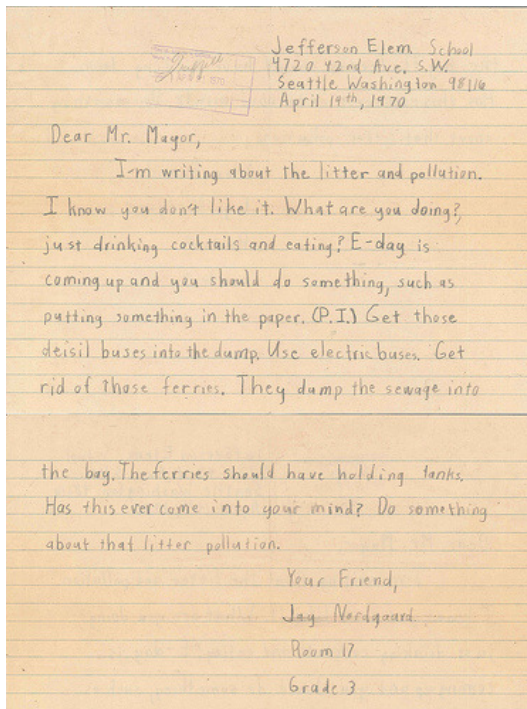 Jefferson Elem. School
4720 42nd Ave. S.W.
Seattle Washington 98116
April 19th, 1970
Dear Mr. Mayor,
I-m writing about the litter and pollution.
I know you don't like it. What are you doing?,
just drinking cocktails and eating? E-day is
coming up and you should do something, such as
putting something in the paper. (P.I.) Get those
deisil buses into the dump. Use electric buses. Get
rid of those ferries. They dump the sewage into
the bay. The ferries should have holding tanks.
Has this ever come into your mind? Do something
about that litter pollution.
Your Friend,
Jay Nordgaard
Room 17
Grade 3